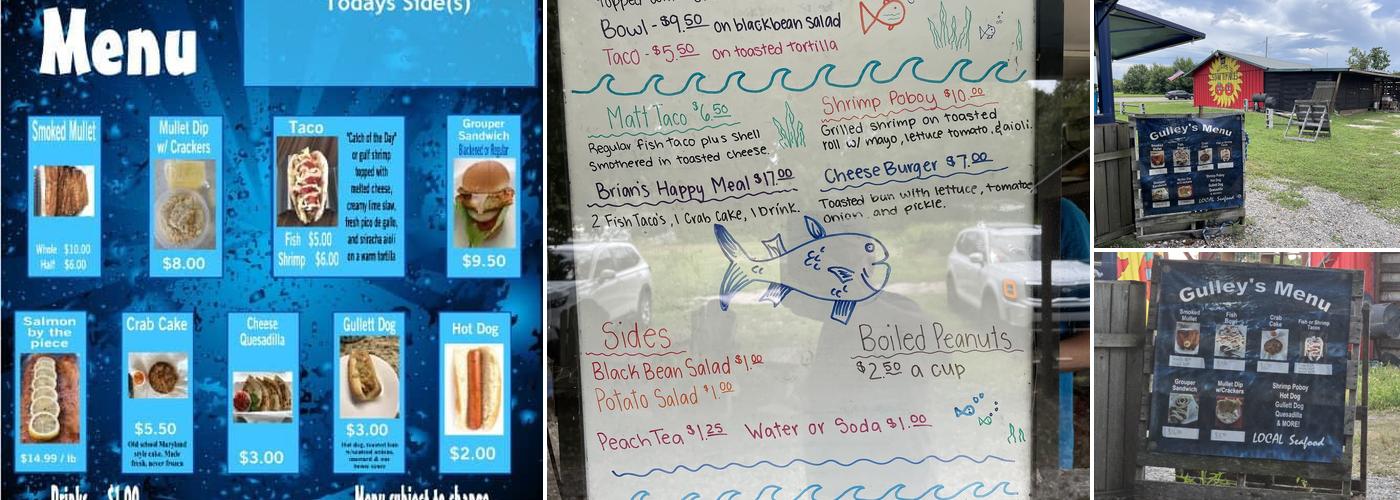 Todays Side(s)
Menu
Smoked Mullet
Whole $10.00
Half $6.00
Mullet Dip
w/ Crackers
$8.00
Taco
"Catch of the Day"
or gulf shrimp
topped with
melted cheese,
creamy lime slaw,
fresh pico de gallo,
and sriracha aioli
on a warm tortilla
Fish $5.00
Shrimp $6.00
Grouper
Sandwich
Blackened or Regular
$9.50
Salmon
by the
piece
$14.99 / lb
Crab Cake
$5.50
Old school Maryland
style cake. Made
fresh, never frozen
Cheese
Quesadilla
$3.00
Gullett Dog
$3.00
Hot Dog
$2.00
Drinks $1.00
Menu subject to change
Bowl - $9.50 on blackbean salad
Taco - $5.50 on toasted tortilla
Matt Taco $6.50
Regular fish taco plus shell
smothered in toasted cheese.
Shrimp Poboy $10.00
Grilled shrimp on toasted
roll w/ mayo, lettuce tomato, & aioli.
Brian's Happy Meal $17.00
2 Fish Taco's, 1 Crab Cake, 1 Drink.
Cheese Burger $7.00
Toasted bun with lettuce, tomatoe
onion, and pickle.
Sides
Black Bean Salad $1.00
Potato Salad $1.00
Boiled Peanuts
$2.50 a cup
Peach Tea $1.25 Water or Soda $1.00
Gulley's Menu
LOCAL Seafood
Gulley's Menu
Smoked
Mullet
Fish
Bowl
Crab
Cake
Fish or Shrimp
Tacos
Grouper
Sandwich
Mullet Dip
w/Crackers
Shrimp Poboy
Hot Dog
Gullett Dog
Quesadilla
& MORE!
LOCAL Seafood